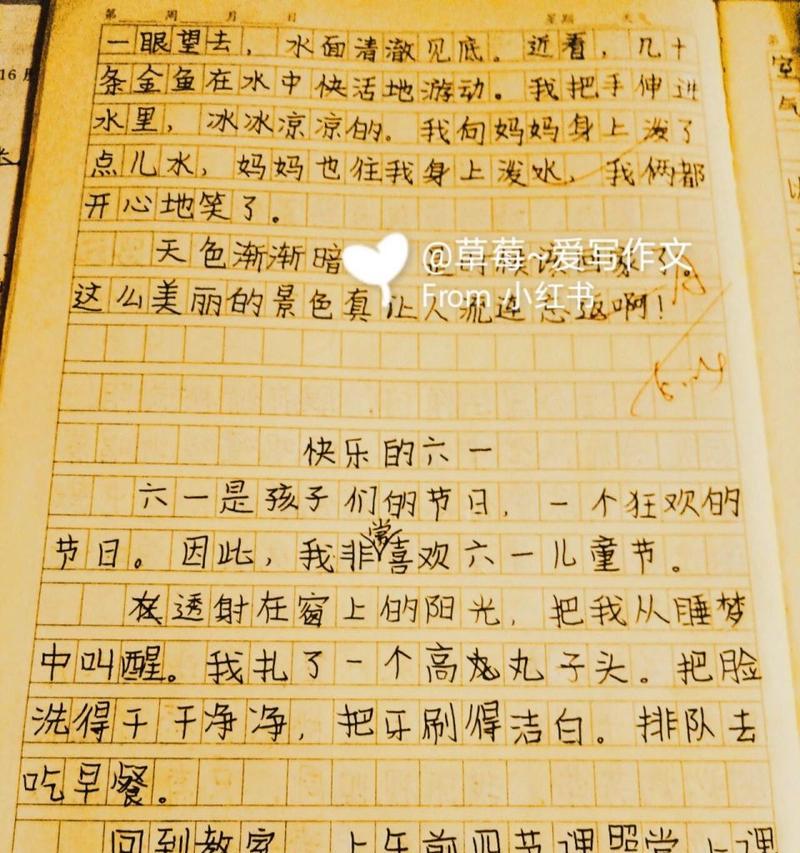 第 周 月 日 星期 天气
一眼望去，水面清澈见底。近看，几十
条金鱼在水中快活地游动。我把手伸进
水里，冰冰凉凉的。我向妈妈身上泼了
点儿水，妈妈也往我身上泼水，我俩都
开心地笑了。
天色渐渐暗
@草莓~爱写作文
这么美丽的景色真让人流连忘返啊！
From 小红书
快乐的六一
六一是孩子们的节日，一个狂欢的
节日。因此，我非常喜欢六一儿童节。
透射在窗上的阳光，把我从睡梦
中叫醒。我扎了一个高丸子头。把脸
洗得干干净净，把牙刷得洁白。排队去
吃早餐。
回到教室，上午前四节课照常上课
16